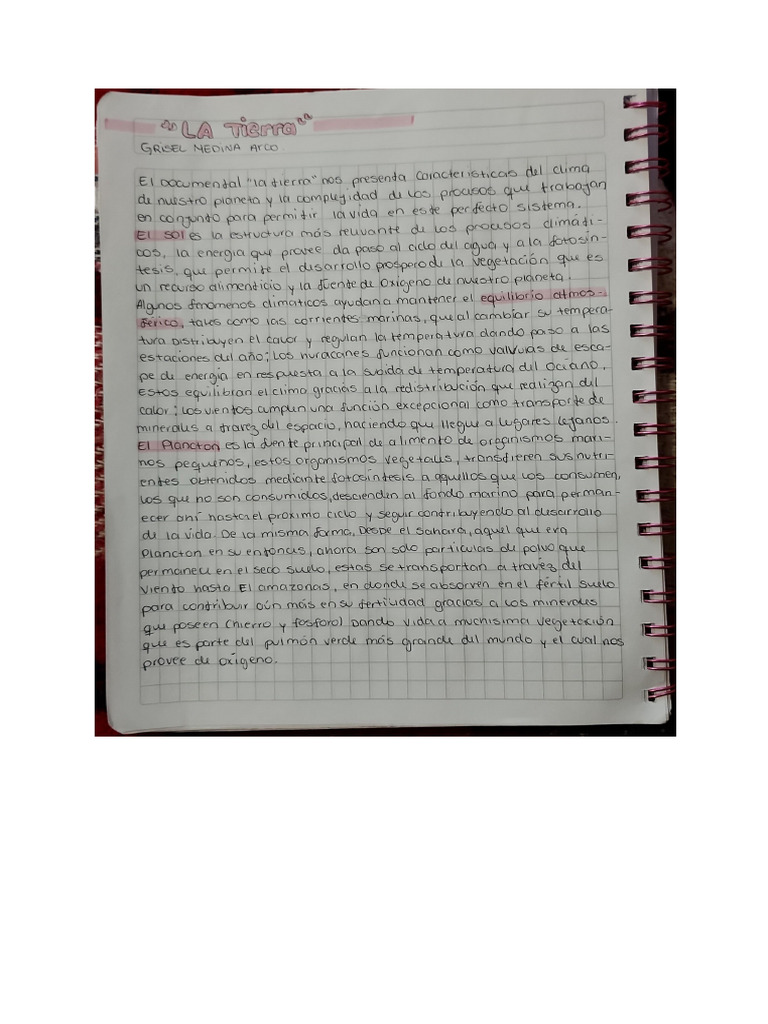 LA Tierra
GRISEL MEDINA ARCO
El Documental "la tierra" nos presenta características del clima
de nuestro planeta y la complejidad de los procesos que trabajan
en conjunto para permitir la vida en este perfecto sistema.
El sol es la estructura más relevante de los procesos climáti-
cos, la energía que provee da paso al ciclo del agua y a la fotosín-
tesis, que permite el desarrollo prospero de la vegetación que es
un recurso alimenticio y la fuente de oxígeno de nuestro planeta.
Algunos fenómenos climáticos ayudan a mantener el equilibrio atmos-
férico, tales como las corrientes marinas, que al cambiar su tempera-
tura distribuyen el calor y regulan la temperatura dando paso a las
estaciones del año; Los huracanes funcionan como valvulas de esca-
pe de energía en respuesta a la subida de temperatura del océano.
Estos equilibran el clima gracias a la redistribución que realizan del
calor; los vientos cumplen una función excepcional como transporte de
minerales a travez del espacio, haciendo que llegue a lugares lejanos.
El Plancton es la fuente principal de alimento de organismos mari-
nos pequeños, estos organismos vegetales, transfieren sus nutri-
entes obtenidos mediante fotosíntesis a aquellos que los consumen,
los que no son consumidos, descienden al fondo marino para perman-
ecer ahí hasta el próximo ciclo y seguir contribuyendo al desarrollo
de la vida. De la misma forma, Desde el sahara, aquel que era
plancton en su entonces, ahora son solo partículas de polvo que
permanece en el seco suelo, estas se transportan a travez del
viento hasta El amazonas, en donde se absorven en el fértil suelo
para contribuir aún más en su fertilidad gracias a los minerales
que poseen (hierro y fosforo) Dando vida a muchísima vegetación
que es parte del pulmón verde más grande del mundo y el cual nos
provee de oxígeno.